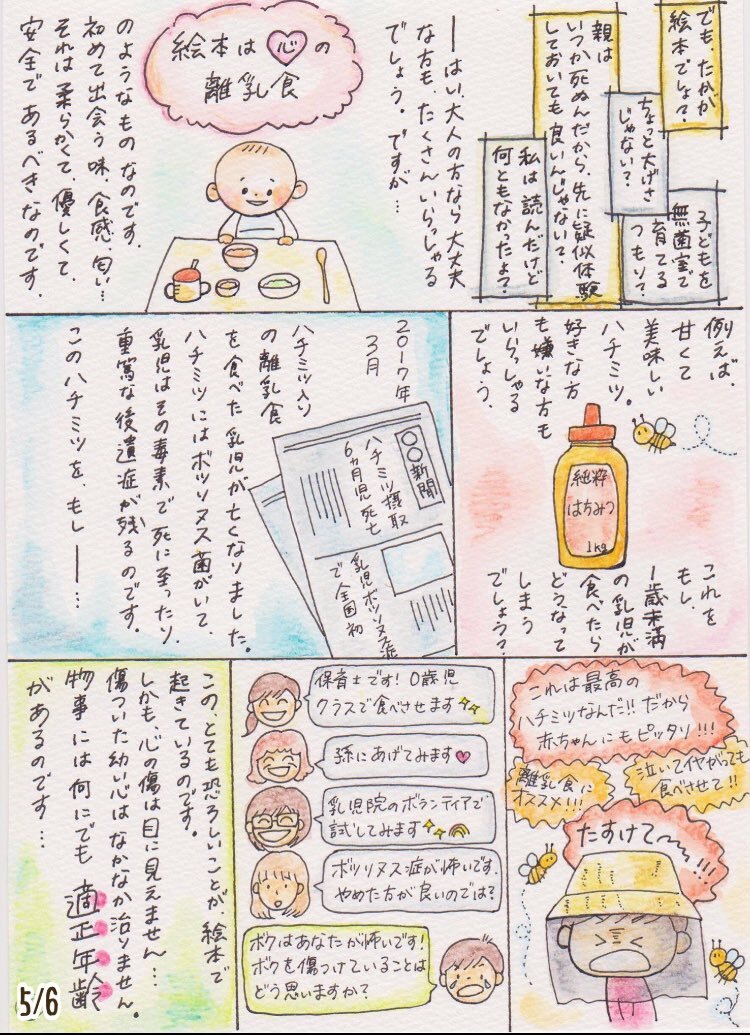 でも、たかが
絵本でしょ？
ちょっと大げさ
じゃない？
子どもを
無菌室で
育てる
つもり？
親は
いつか死ぬんだから、先に疑似体験
しておいても良いんじゃない？
私は読んだけど
何ともなかったよ？
―はい、大人の方なら大丈夫
な方も、たくさんいらっしゃる
でしょう。ですが…
絵本は心の
離乳食
のようなものなのです。
初めて出会う味、食感、匂い…
それは柔らかくて、優しくて、
安全であるべきなのです。
例えば、
甘くて
美味しい
ハチミツ。
好きな方
も嫌いな方も
いらっしゃる
でしょう。
純粋
はちみつ
1kg
これを
もし、
1歳未満
の乳児が
食べたら
どうなって
しまう
でしょう？
2017年
3月
ハチミツ入り
の離乳食
を食べた乳児が亡くなりました。
ハチミツにはボツリヌス菌がいて、
乳児はその毒素で死に至ったり、
重篤な後遺症が残るのです。
このハチミツを もし――…
○○新聞
ハチミツ摂取
6ヵ月児死亡
乳児ボツリヌス症
で全国初
これは最高の
ハチミツなんだ!!だから
赤ちゃんにもピッタリ!!!
離乳食に
オススメ!!!
泣いてイヤがっても
食べさせて!!
たすけて〜!!!
保育士です！0歳児
クラスで食べさせます✨
孫にあげてみます♥
乳児院のボランティアで
試してみます✨🌈
ボツリヌス症が怖いです。
やめた方が良いのでは？
ボクはあなたが怖いです！
ボクを傷つけていることは
どう思いますか？
この、とても恐ろしいことが、絵本で
起きているのです。
しかも、心の傷は目に見えません…
傷ついた幼い心はなかなか治りません。
物事には何にでも 適正年齢
があるのです…
5/6